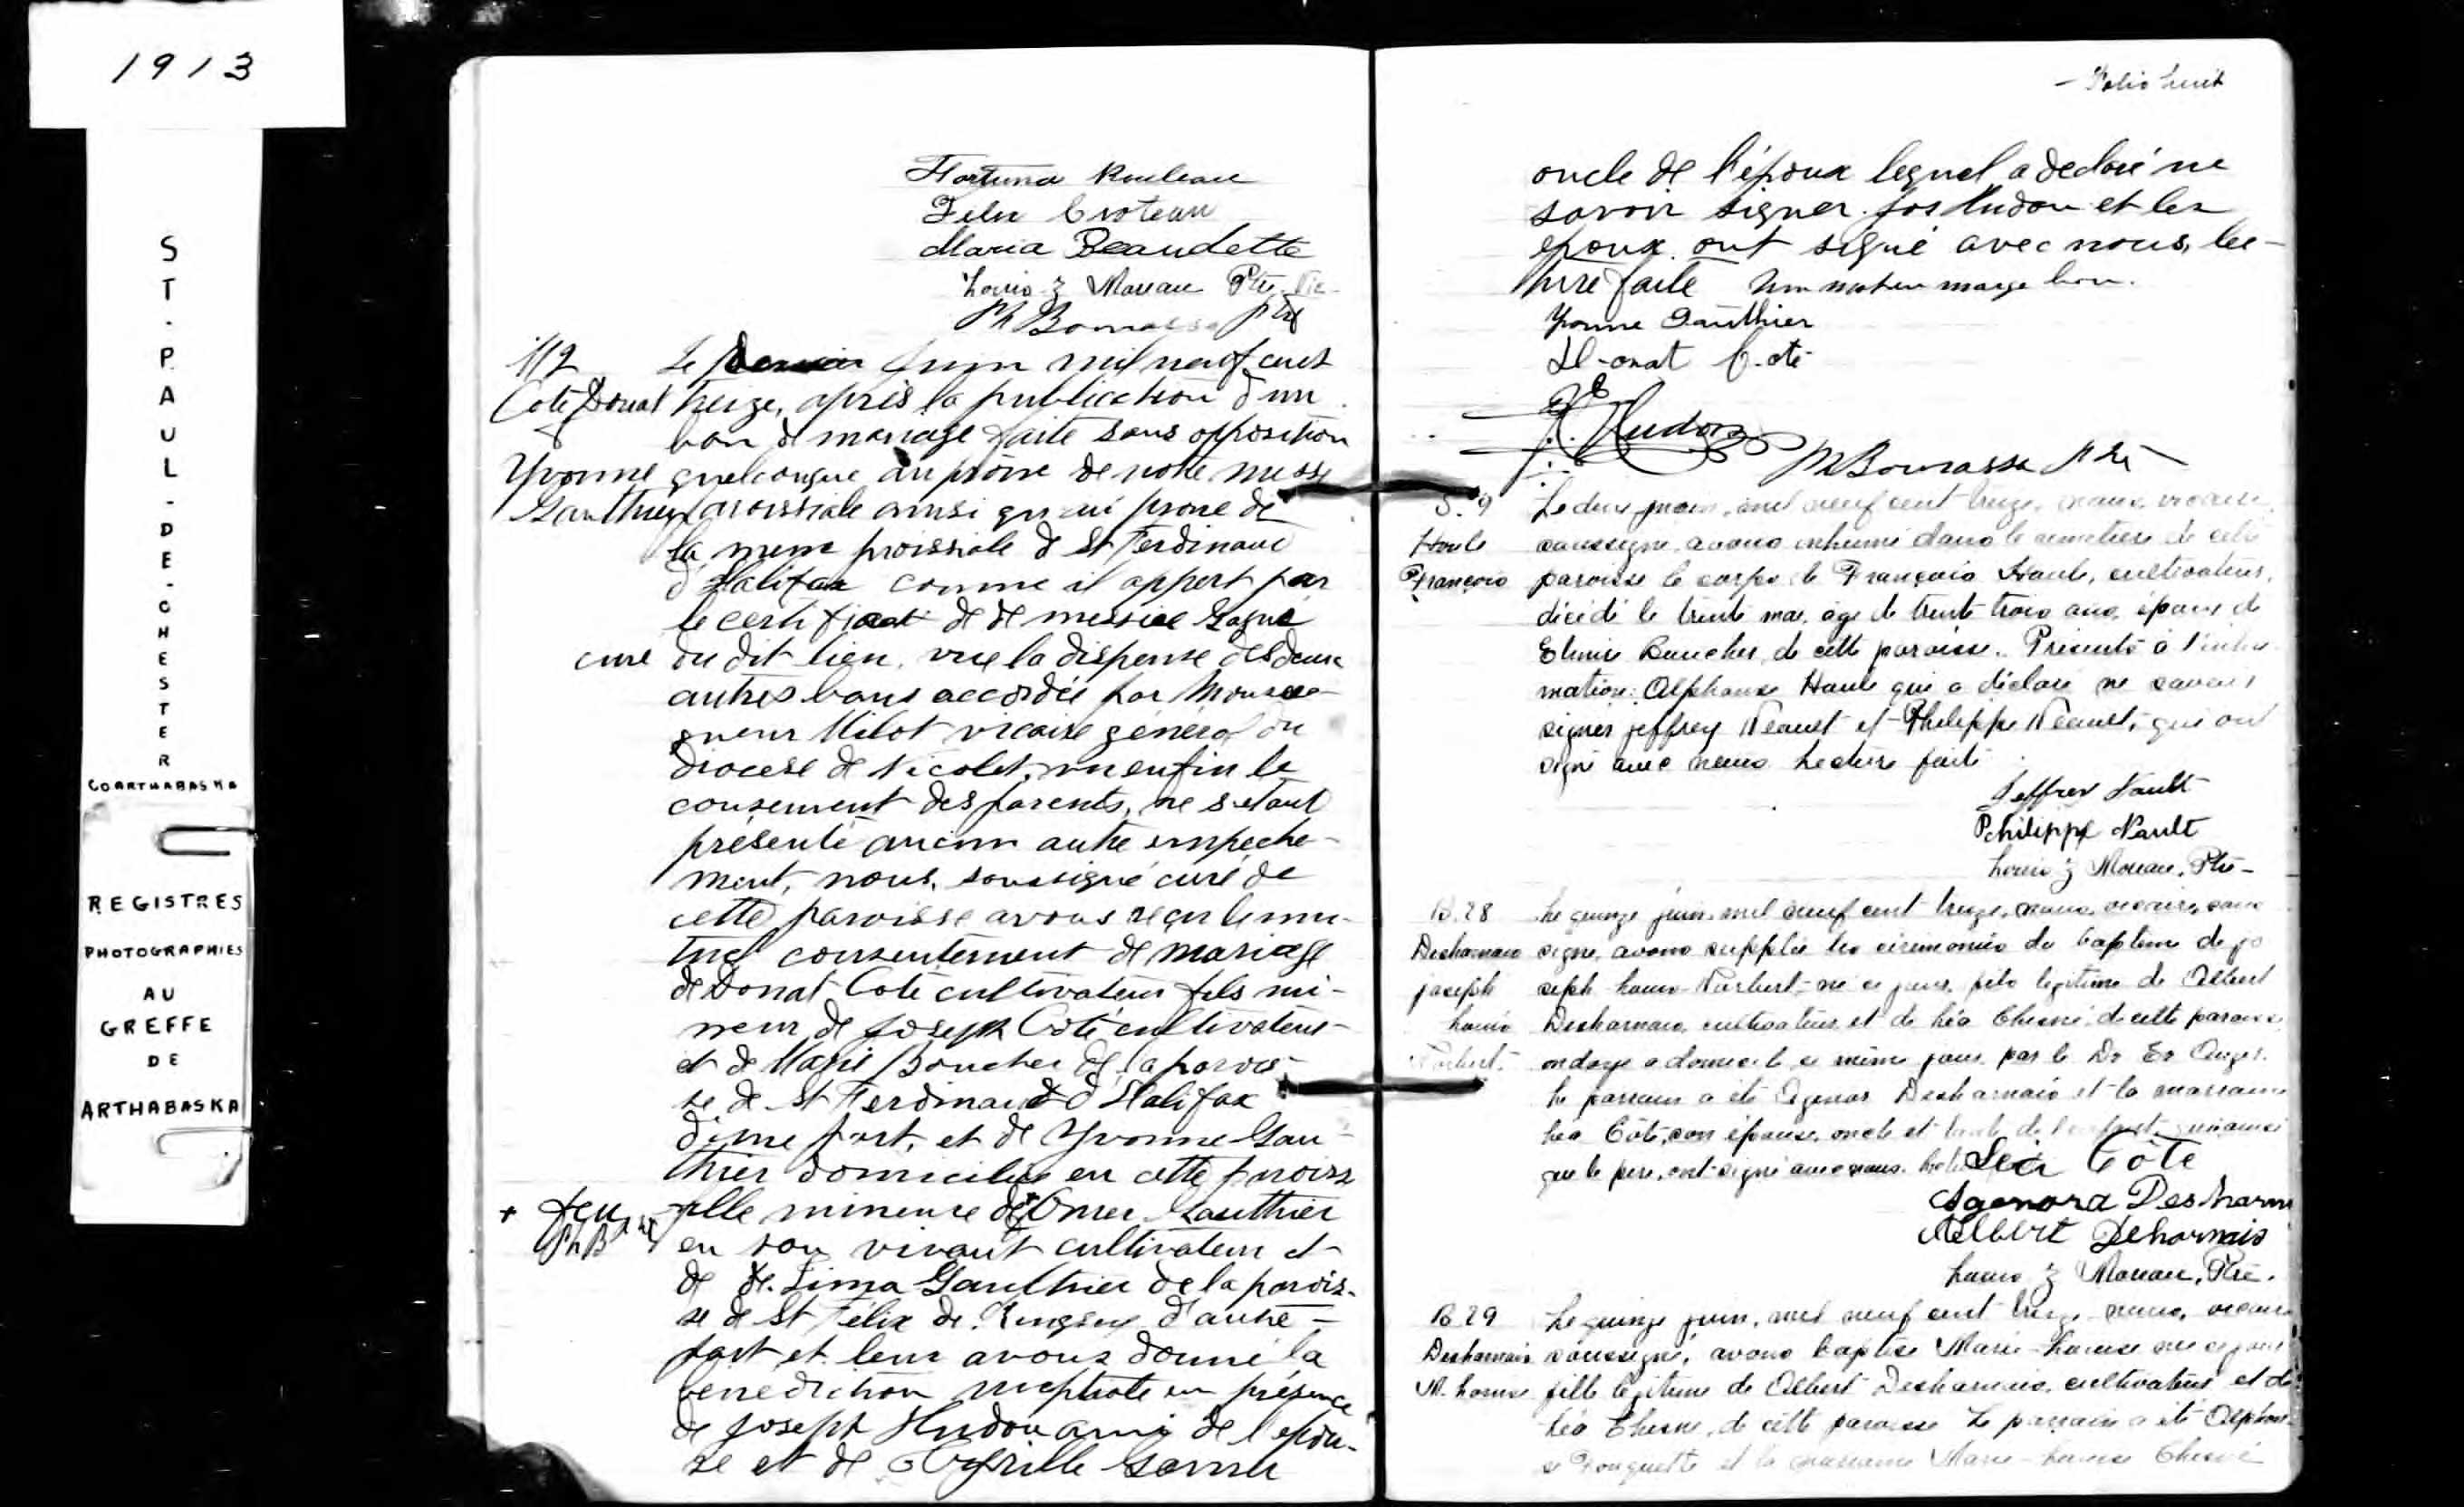 1913
ST.PAUL-DE-CHESTER
CO ARTHABASKA
REGISTRES
PHOTOGRAPHIES
AU
GREFFE
DE
ARTHABASKA
Fortuna Rouleau
Felix Croteau
Maria Beaudette
Louis Z Moreau Ptre Vic
Ph Bourassa ptre
Le juin mil neuf cent
Coté Donat treize, après la publication d'un
& ban de mariage faite sans opposition
Yvonne quelconque au prône de notre messe
Gauthier paroissiale ainsi qu'au prone de
la messe proissiale de St Ferdinand
d'Halifax comme il appert par
le certificat de de messire Gagné
curé du dit lieu, vue la dispense des deux
autres bans accordée par Monsei-
gneur Milot vicaire général du
diocèse de Nicolet, vu enfin le
consement des parents, ne s'etant
présenté aucun autre empeche-
ment, nous, soussigné curé de
cette paroisse avons reçu le mu-
tuel consentement de mariage
de Donat Coté cultivateur fils mi-
neur de Joseph Coté cultivateur
et de Marie Boucher de la parois-
se de St Ferdinand d'Halifax
d'une part, et de Yvonne Gau-
thier domiciliée en cette paroisse
+ feu fille mineure de + Omer Gauthier
Ph B ptre en son vivant cultivateur et
de Lima Gauthier de la parois-
se de St Félix de Kingsey d'autre
part et leur avons donné la
bénédiction nuptiale en présence
de Joseph Hudon ami de l'épou-
se et de
- Folio huit
oncle de l'époux lequel a declaré ne
savoir signer. Jos Hudon et les
époux ont signé avec nous, lec-
ture faite Un mot en marge bon.
Yvonne Gauthier
Donat Coté
J.E. Hudon
Ph Bourassa Ptre
S. 9 Le deux juin, mil neuf cent treize, nous, vicaire
Houle soussigné, avons inhumé dans le cimetière de cette
François paroisse le corps de François Houle, cultivateur,
décédé le trente mai, agé de trente trois ans, époux de
Boucher, de cette paroisse. Présents à l'inhu-
mation: Alphonse Houle qui a déclaré ne savoir
signer Jeffrey Neault et Philippe Neault, qui ont
signé avec nous. Lecture faite
Jeffrey Nault
Philippe Nault
Louis Z Moreau, Ptre-
B. 28 Le quinze juin, mil neuf cent treize, nous, vicaire, sous
Desharnais signé, avons supplée les cérémonies du baptême de Jo
Joseph seph Louis Norbert, né ce jour, fils légitime de Albert
Louis Desharnais, cultivateur, et de Léa Chesné de cette paroisse
Norbert. ondoyé a domicile ce même jour par le Dr
Le parrain a été Agenor Desharnais et la marraine
Léa Côté, son épouse, oncle et tante de l'enfant, qui ainsi
que le père, ont signé avec nous.
Léa Côté
Agenora Desharn
Albert Deharnais
Louis Z Moreau, Ptre.
B 29 Le quinze juin, mil neuf cent treize nous, vicaire
Desharnais soussigné, avons baptisé Marie-Louise née ce jour
M. Louise fille légitime de Albert Desharnais, cultivateur et de
Léa Chesné, de cette paroisse Le parrain a été Alphon
se Rouquette et la marraine Marie-Louise Chesné